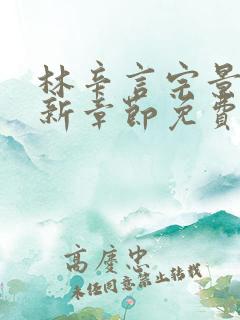 林辛言宗景
新章節免費
高慶忠
未经同意禁止转载